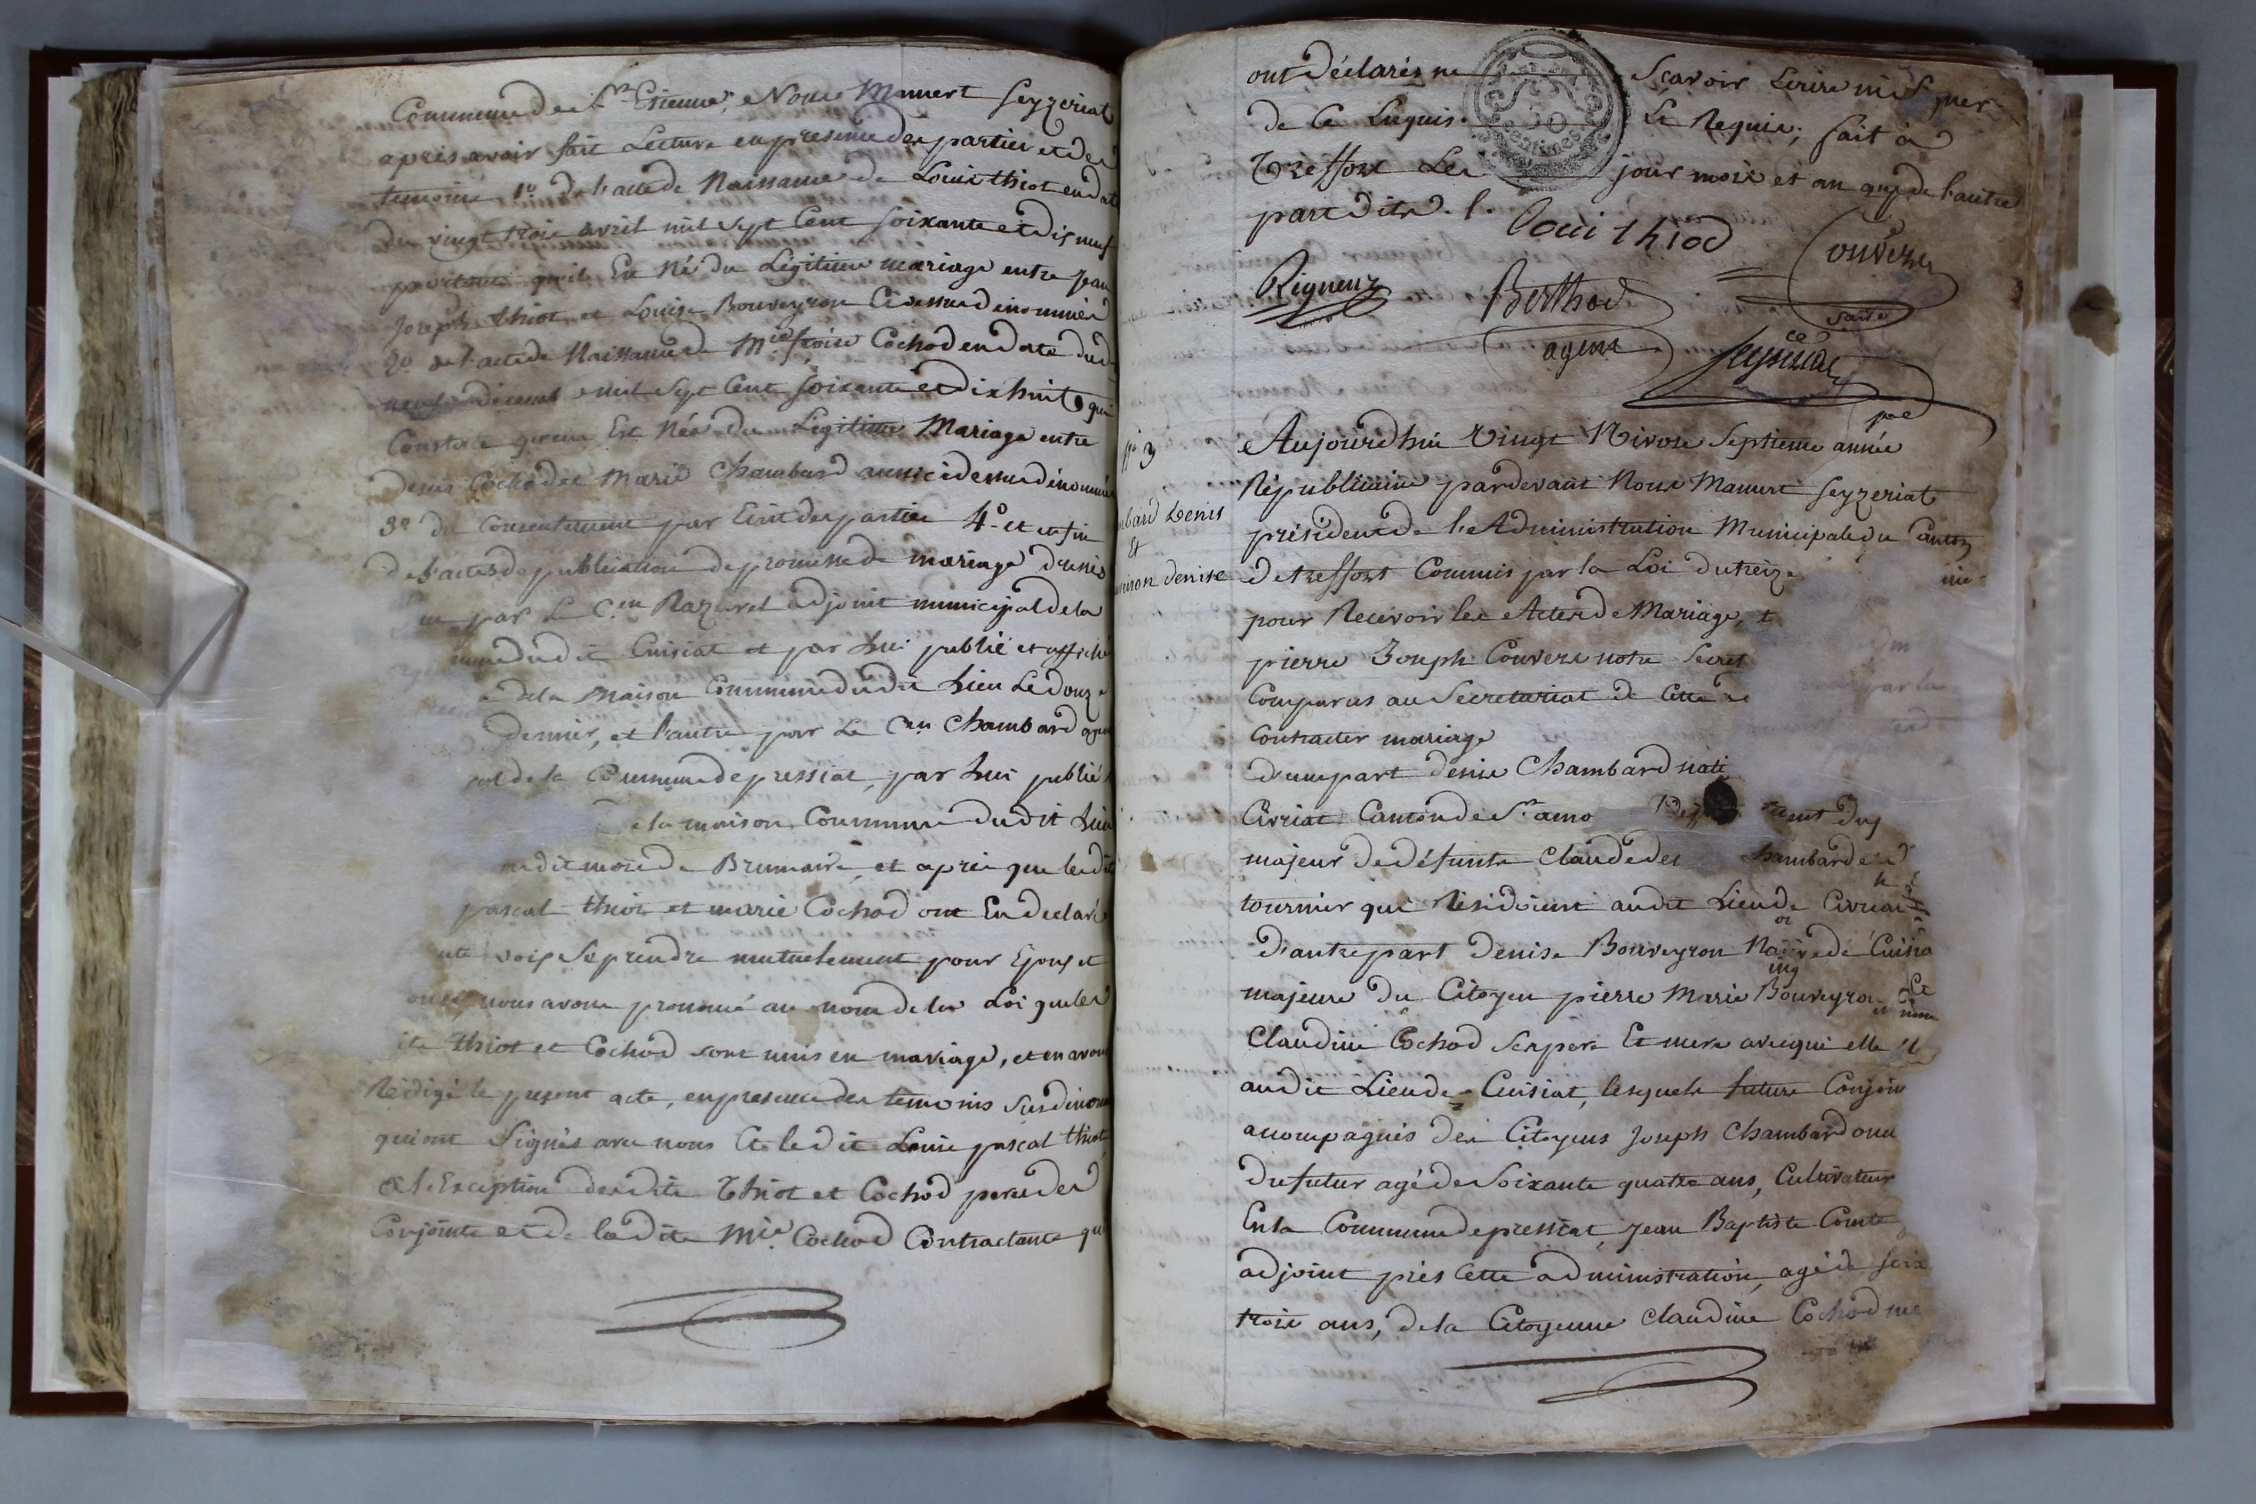 Commune de St Etienne, Nous Manuert Seyzeriat
après avoir fait Lecture en presence des parties et des
temoins 1° de l'acte de Naissance de Louis thiot en date
du vingt trois avril mil sept Cent soixante et dix neuf
portant qu'il Est Né du Légitime mariage entre Jean
Joseph thiot et Louise Bouveyron Ci dessus dénommés
2° de l'acte de Naissance de Mie Cochod en date du
neuf mil sept Cent soixante et dix huit qui
Constate qu'elle Est Née du Légitime Mariage entre
denis Cochod et Marie Chambard aussi ci dessus dénommés
3° du Consentement par Ecrit des parties 4° et enfin
de l'actes de publication de promesse de mariage
par le Cen Nazaret adjoint municipal de la
dudit Cuisiat et par Lui publié et affiché
de la Maison Commune dudit Lieu Le douze
dernier, et l'autre par Le Cen Chambard agent
de la Commune de pressiat, par Lui publiés
de la maison Commune dudit Lieu
dudit mois de Brumaire, et après que lesdits
pascal thiot et marie Cochod ont En declaré
voix se prendre mutuelement pour Epoux et
nous avons prononcé au nom de la Loi que les
dits thiot et Cochod sont unis en mariage, et en avons
Rédigé le present acte, en presence des temoins susdénommés
qui ont signés avec nous et le dit Louis pascal thiot
a l'Exception desdits Thiot et Cochod peres des
Conjoints et de ladite Mie Cochod Contractante qui
ont déclarés ne sçavoir Ecrire ni signer
de Ce Enquis Le Requis, fait à
Treffort Les jour mois et an que de l'autre
part dits.
loui thiod
Couvert
Rigneux
Berthod
agent
Seyzeriat
N° 3
Aujourdhui Vingt Nivose Septieme année
Républicaine pardevant Nous Manuert Seyzeriat
président de l'Administration Municipale du Canton
de treffort Commis par la Loi du treize
pour Recevoir les Actes de Mariage,
pierre Joseph Couvert notre Secret
Comparus au Secretariat de Cette
Contracter mariage
bard Denis
Et
denise
d'une part denis Chambard nati
Civriat Canton de St amo
majeur de défunts Claude Chambard et
tournier qui Résidoient audit Lieu de Civriat
d'autre part Denise Bouveyron Native de Cuisia
majeure du Citoyen pierre Marie Bouveyron et
Claudine Cochod ses pere Et mere avec qui elle
audit Lieu de Cuisiat, lesquels futurs Conjoin
acompagnés des Citoyens Joseph Chambard oncl
du futur agé de Soixante quatre ans, Cultivateur
En la Commune de pressiat, Jean Baptiste Comte
adjoint près Cette administration, agé de soix
trois ans, de la Citoyenne Claudine Cochod me